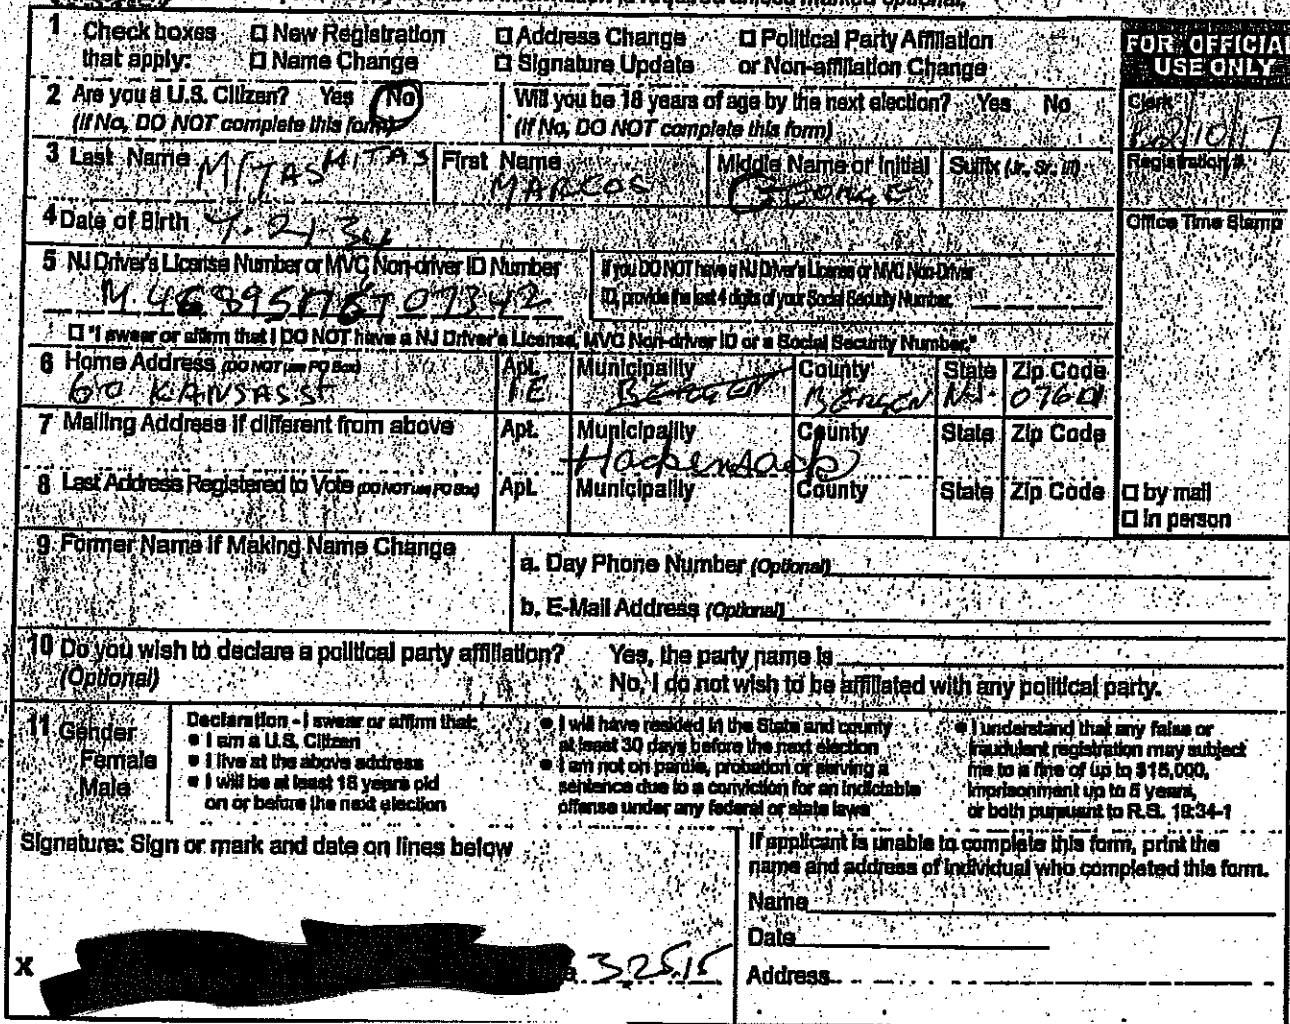 1 Check boxes that apply: □ New Registration □ Address Change □ Political Party Affiliation
□ Name Change □ Signature Update or Non-affiliation Change
FOR OFFICIAL USE ONLY
2 Are you a U.S. Citizen? Yes No Will you be 18 years of age by the next election? Yes No
(If No, DO NOT complete this form) (If No, DO NOT complete this form)
Clerk
3 Last Name MITAS MITAS First Name MARCOS Middle Name or Initial GEORGE Suffix (Jr., Sr., III)
Registration #
4 Date of Birth
Office Time Stamp
5 NJ Driver's License Number or MVC Non-driver ID Number
If you DO NOT have a NJ Driver's License or MVC Non-Driver
ID, provide the last 4 digits of your Social Security Number.
□ "I swear or affirm that I DO NOT have a NJ Driver's License, MVC Non-driver ID or a Social Security Number."
6 Home Address (DO NOT use PO Box) Apt. Municipality County State Zip Code
KANSAS St 1E BERGEN BERGEN NJ
7 Mailing Address if different from above Apt. Municipality County State Zip Code
Hackensack
8 Last Address Registered to Vote (DO NOT use PO Box) Apt. Municipality County State Zip Code
□ by mail
□ in person
9 Former Name if Making Name Change
a. Day Phone Number (Optional)
b. E-Mail Address (Optional)
10 Do you wish to declare a political party affiliation? Yes, the party name is
(Optional) No, I do not wish to be affiliated with any political party.
11 Gender
Female
Male
Declaration - I swear or affirm that:
• I am a U.S. Citizen
• I live at the above address
• I will be at least 18 years old
on or before the next election
• I will have resided in the State and county
at least 30 days before the next election
• I am not on parole, probation or serving a
sentence due to a conviction for an indictable
offense under any federal or state laws
• I understand that any false or
fraudulent registration may subject
me to a fine of up to $15,000,
imprisonment up to 5 years,
or both pursuant to R.S. 19:34-1
Signature: Sign or mark and date on lines below
X 3.25.15
If applicant is unable to complete this form, print the
name and address of individual who completed this form.
Name
Date
Address